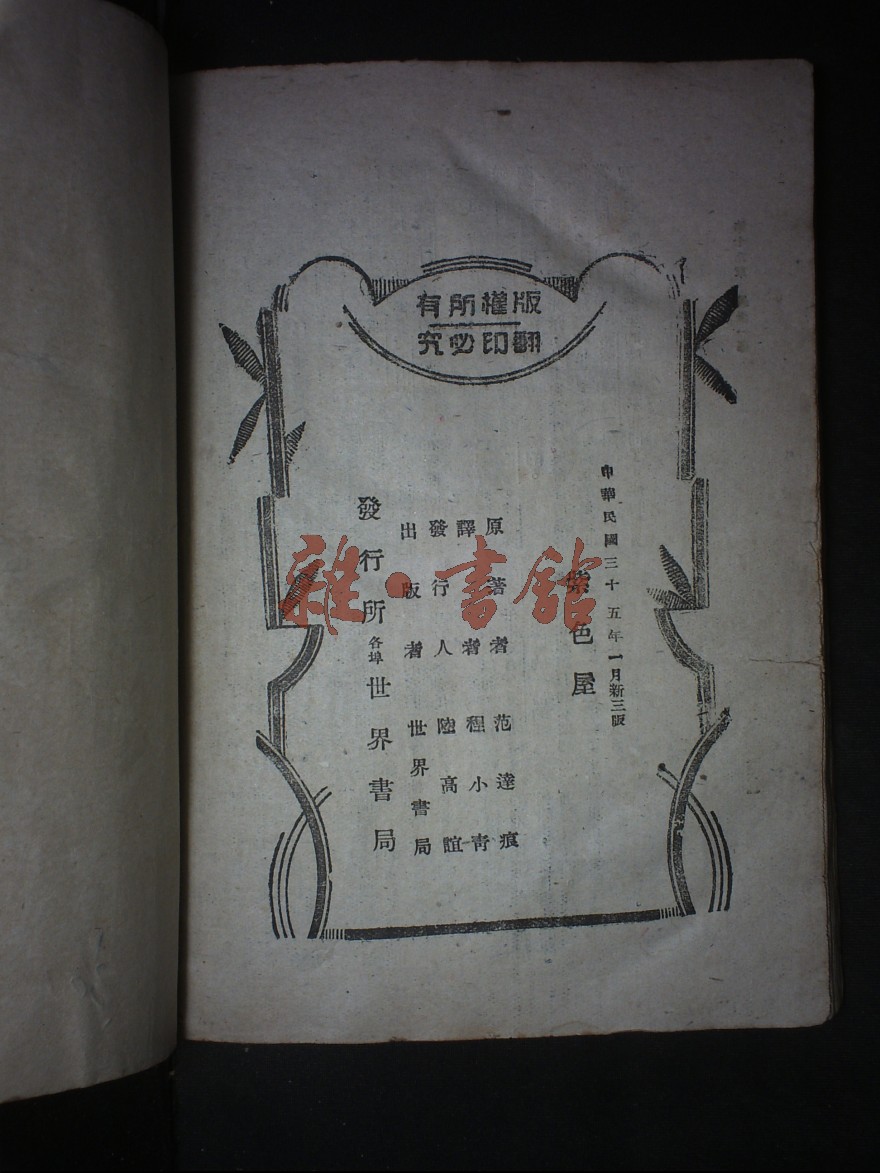 版權所有
翻印必究
中華民國三十五年一月新三版
紫色屋
原著者 范達痕
譯者 程小青
發行人 陸高誼
出版者 世界書局
發行所 各埠 世界書局
雜·書館